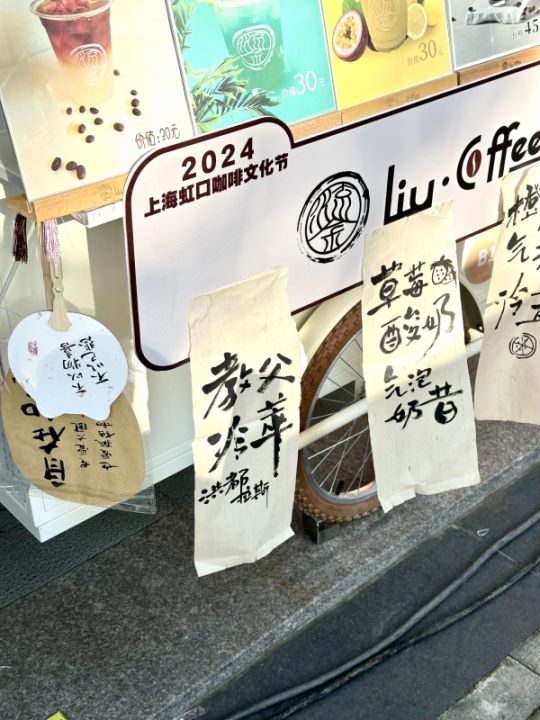 价值:30元
价值30元
价值30元
45
2024
上海虹口咖啡文化节
Liu·Coffee
教父
冷萃
洪都拉斯
草莓
酸奶
气泡
奶昔
橙
气
冷
不以物喜
不以己悲